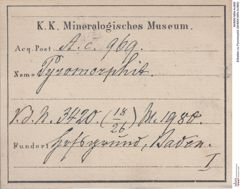 K. K. Mineralogisches Museum.
Acq. Post A.c. 969.
Name Pyromorphit.
V.d.N. 3420 (18/26) M. 1980.
Fundort Hofsgrund, Baden.
I